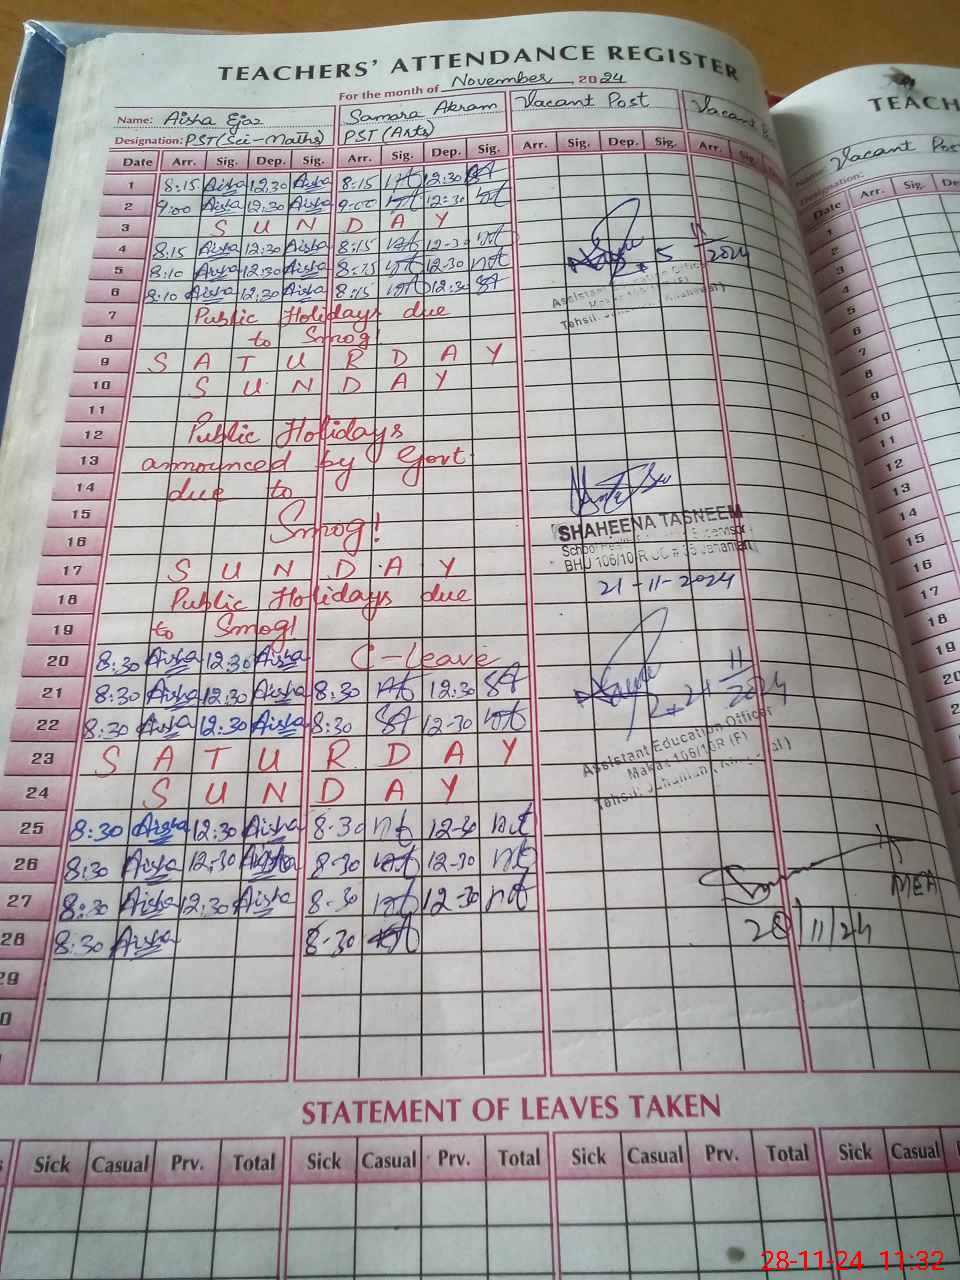 TEACHERS' ATTENDANCE REGISTER
For the month of November 2024
Name: Aisha Ejaz Samara Akram Vacant Post Vacant
Designation: PST (Sci-Maths) PST (Arts)
Date Arr. Sig. Dep. Sig. Arr. Sig. Dep. Sig. Arr. Sig. Dep. Sig. Arr. Sig.
1 8:15 Aisha 12:30 Aisha 8:15 12:30
2 9:00 Aisha 12:30 Aisha 9:00 12:30
3 SUNDAY
4 8:15 Aisha 12:30 Aisha 8:15 12-30
5 8:10 Aisha 12:30 Aisha 8:15 12-30
5 11/2024
6 8:10 Aisha 12:30 Aisha 8:15 12:30
Assistant Education Officer
Tehsil:
7 Public Holidays due
8 to Smog!
9 SATURDAY
10 SUNDAY
11
12 Public Holidays
13 announced by Govt
14 due to
15 Smog!
16
SHAHEENA TASNEEM
School Supervisor
BHU 106/10-R UC # 35 Jahanian
21-11-2024
17 SUNDAY
18 Public Holidays due
19 to Smog!
20 8:30 Aisha 12:30 Aisha C-Leave
21 8:30 Aisha 12:30 Aisha 8:30 12:30
21 11/2024
22 8:30 Aisha 12:30 Aisha 8:30 12-30
Assistant Education Officer
Markaz 106/10R (F)
Tehsil:
23 SATURDAY
24 SUNDAY
25 8:30 Aisha 12:30 Aisha 8-30 12-30
26 8:30 Aisha 12:30 Aisha 8-30 12-30
27 8:30 Aisha 12:30 Aisha 8-30 12-30
MEA
28/11/24
28 8:30 Aisha 8-30
29
0
STATEMENT OF LEAVES TAKEN
Sick Casual Prv. Total Sick Casual Prv. Total Sick Casual Prv. Total Sick Casual
TEACH
Name: Vacant Post
Designation:
Date Arr. Sig. De
1
2
3
4
5
6
7
8
9
10
11
12
13
14
15
16
17
18
19
20
28-11-24 11:32